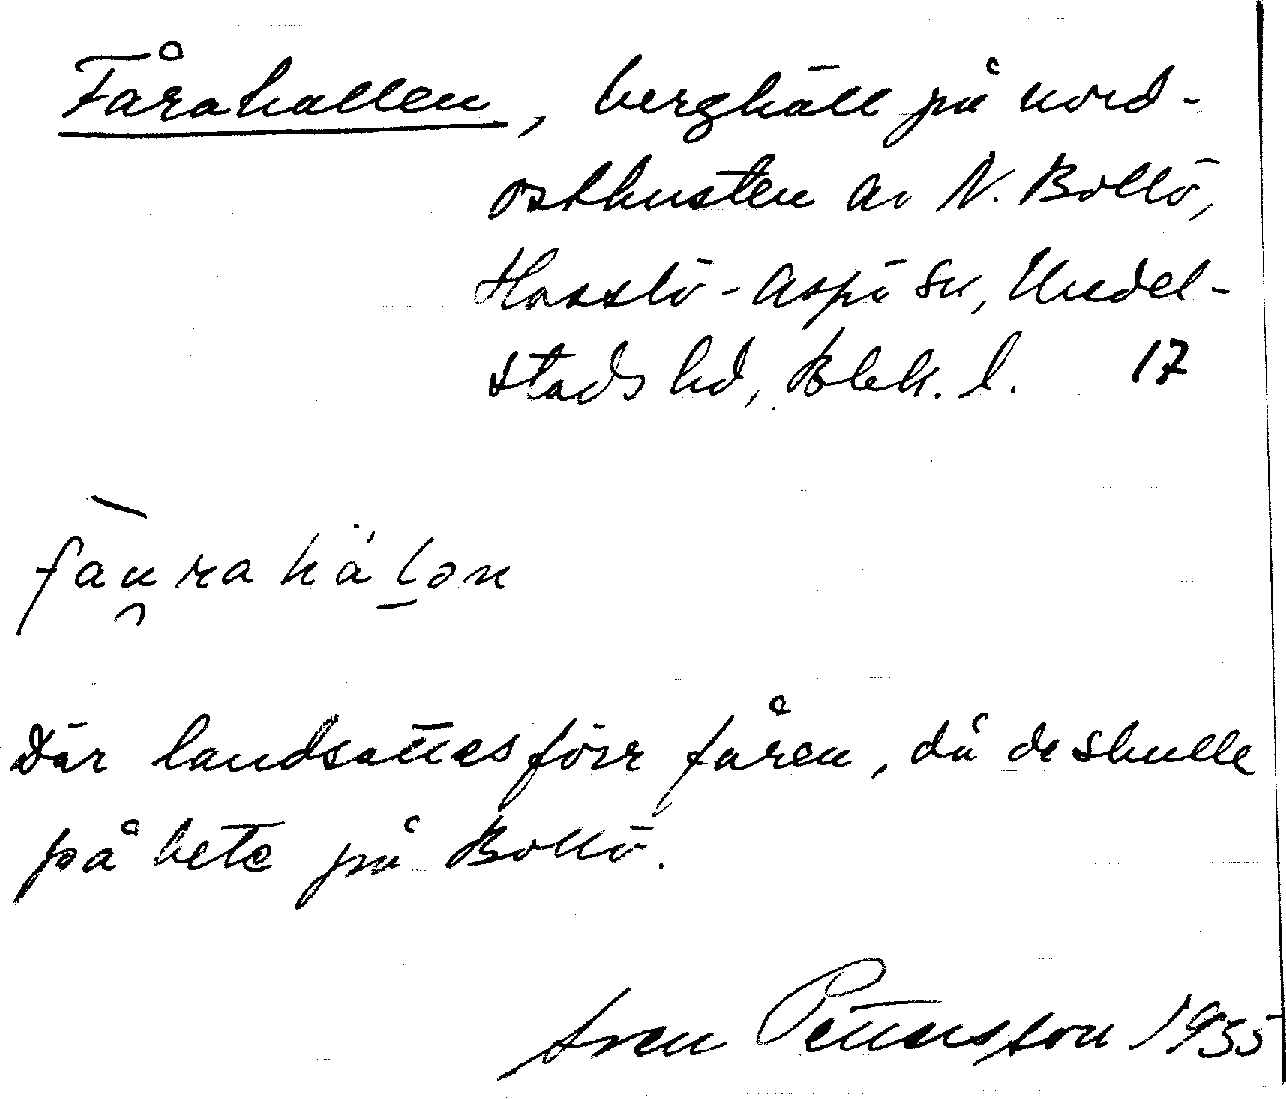 Fårahallen, berghäll på nord-
ostkusten av N. Bollö,
Hasslö-Aspö sn, Medel-
stads hd, Blek. l. 17
fàu̯rahálən
Där landsattes förr fåren, då de skulle
på bete på Bollö.
Sven Pettersson 1935